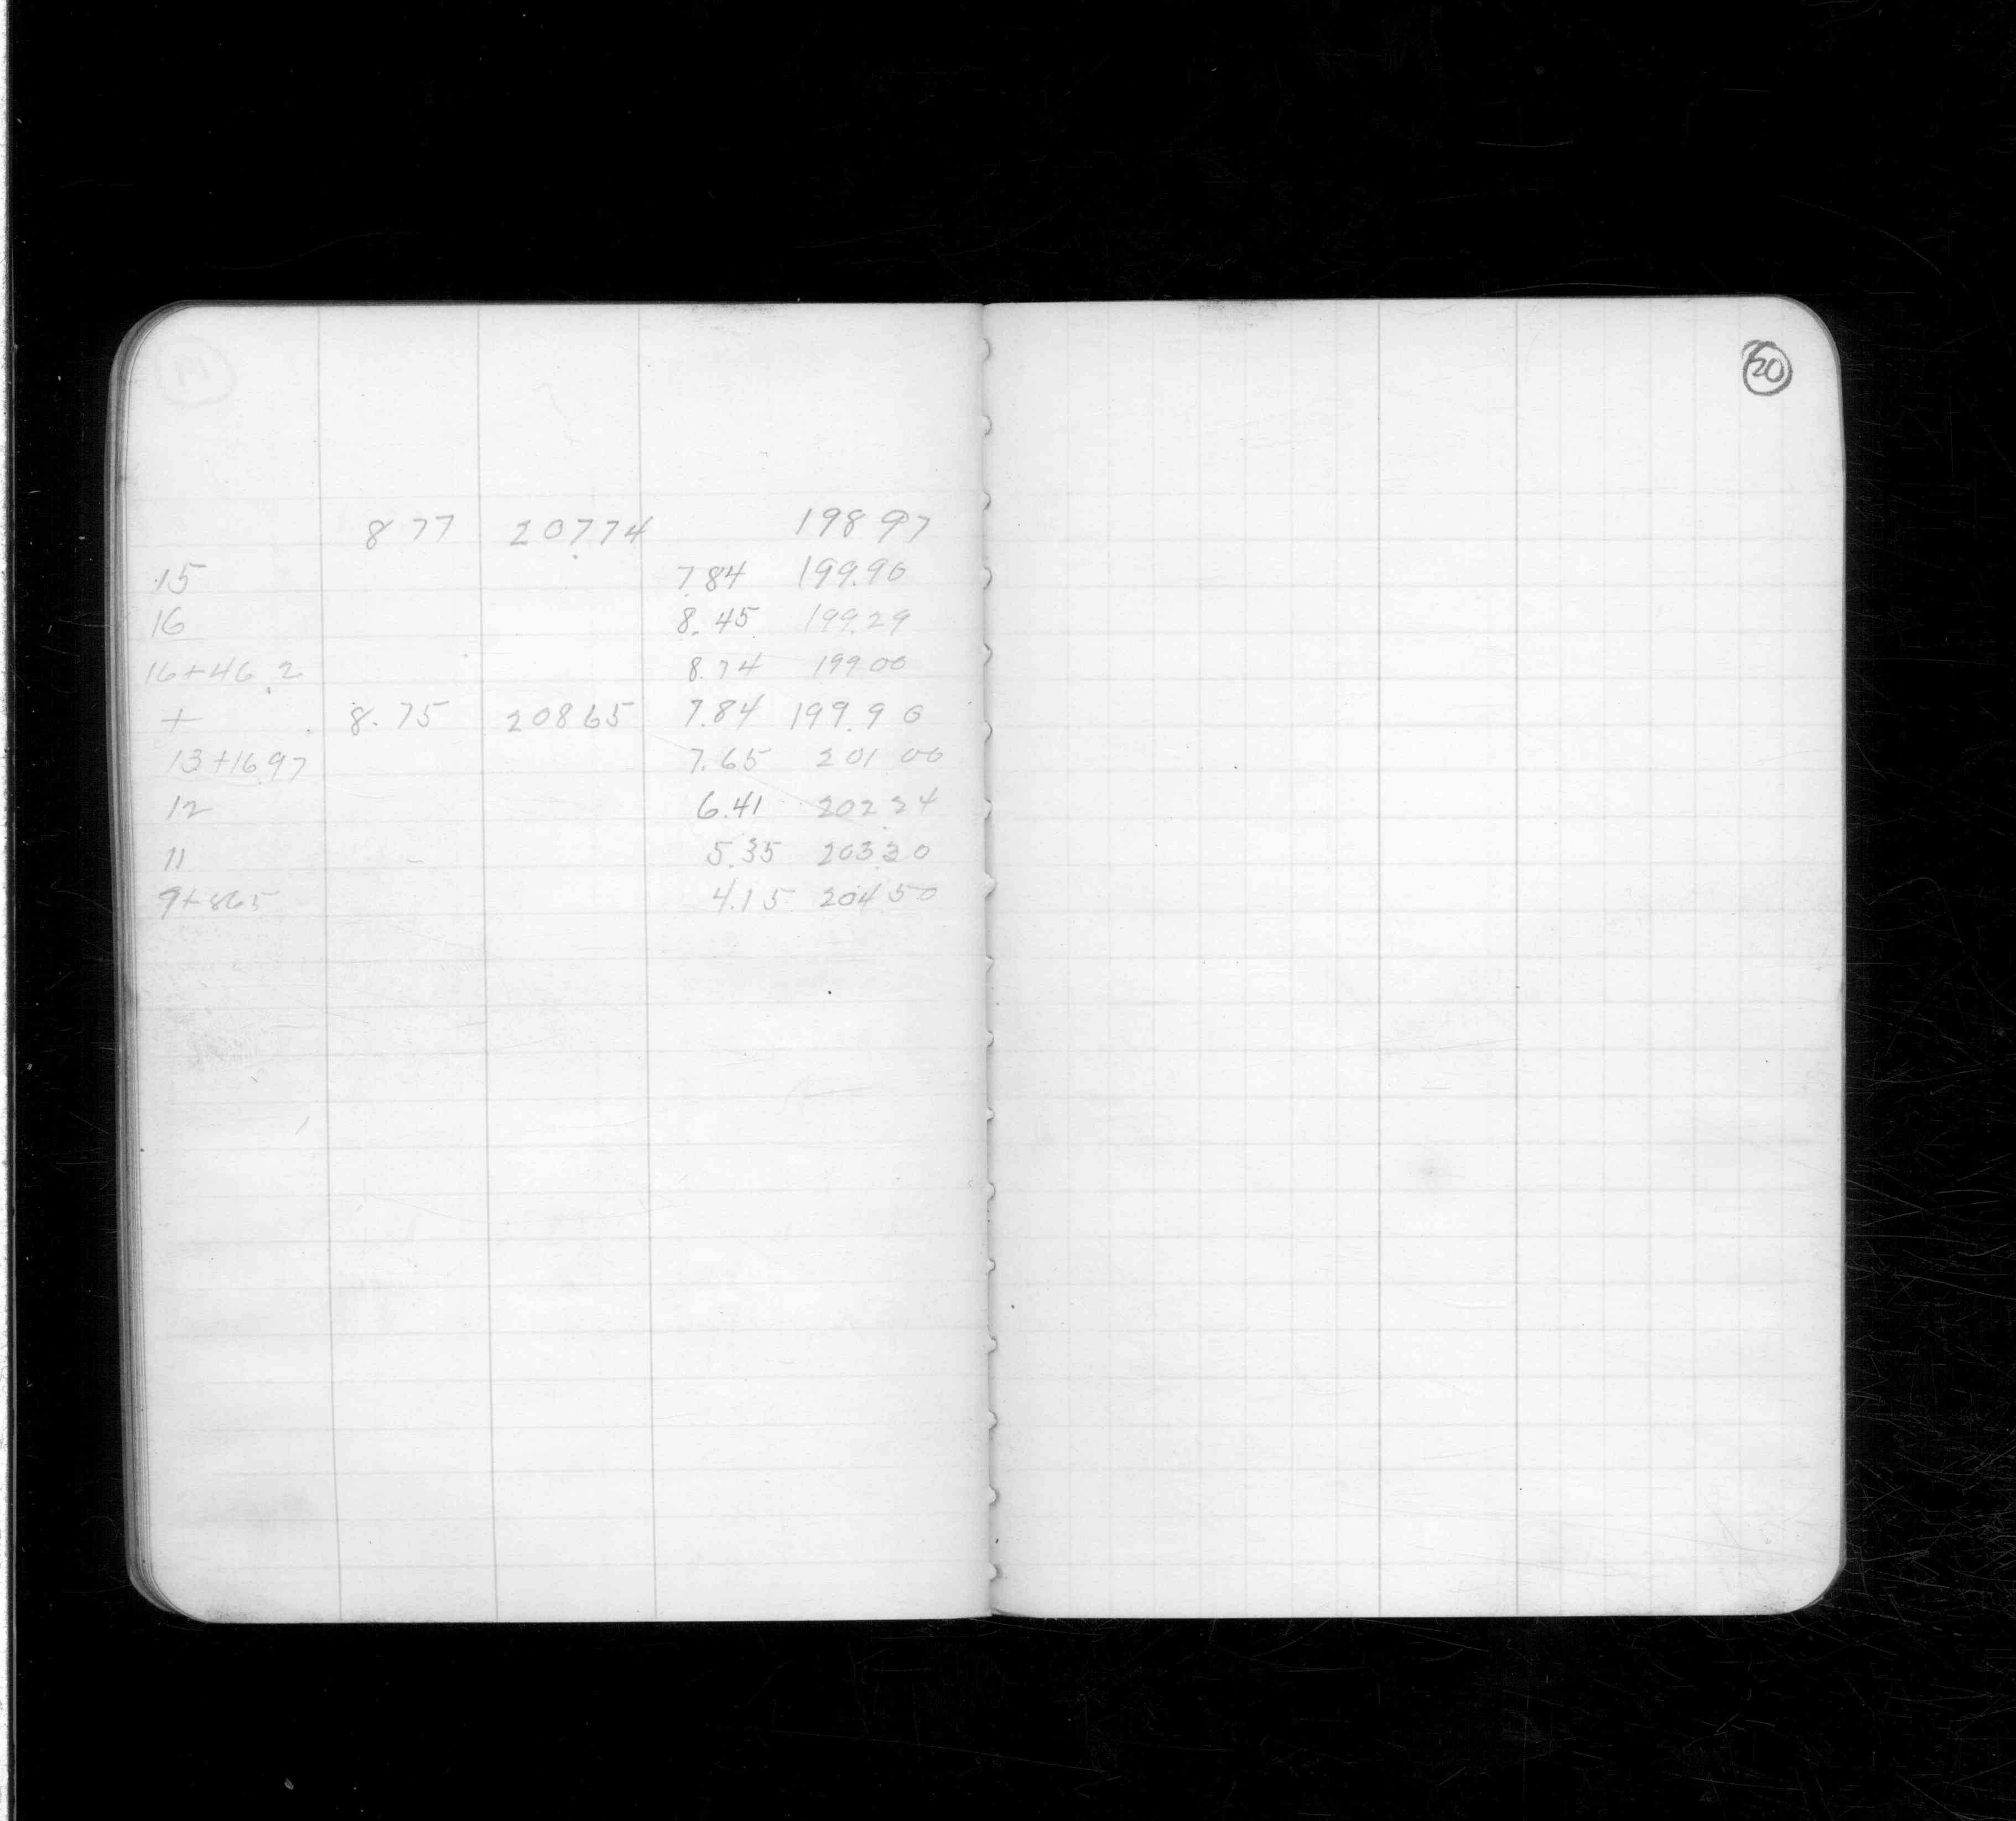 20
8 77 20774 198 97
15 7.84 199.90
16 8.45 199.29
16+46.2 8.74 199 00
+ 8.75 20865 7.84 199.90
13+16.97 7.65 201 00
12 6.41 202 24
11 5.35 203.30
9+865 4.15 204 50